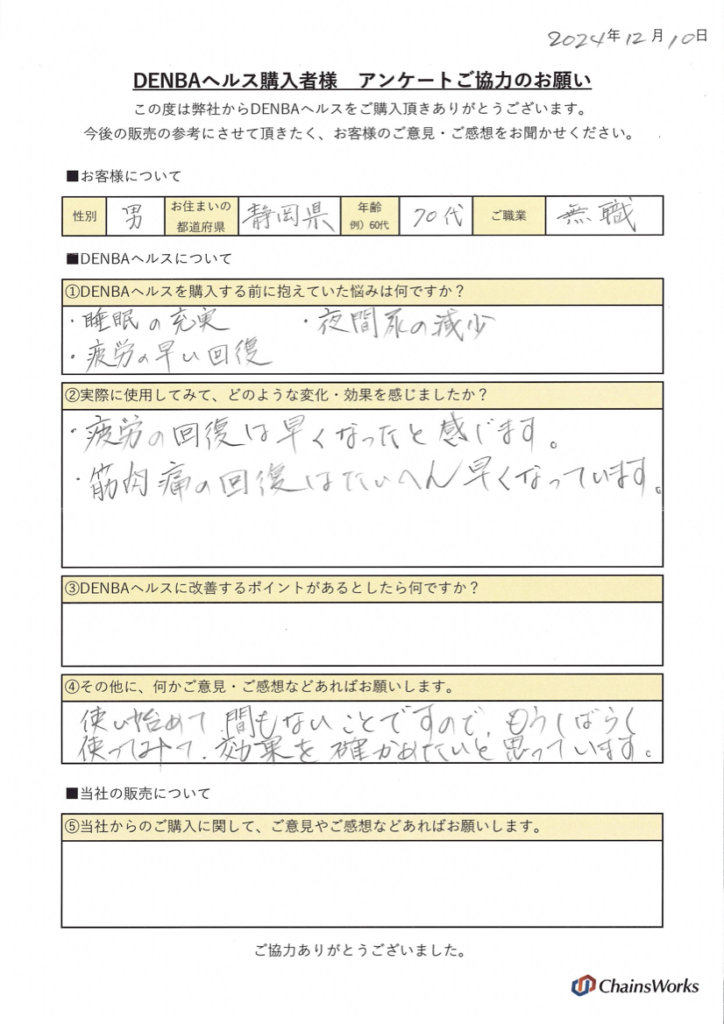 2024年12月10日
DENBAヘルス購入者様　アンケートご協力のお願い
この度は弊社からDENBAヘルスをご購入頂きありがとうございます。
今後の販売の参考にさせて頂きたく、お客様のご意見・ご感想をお聞かせください。
■お客様について
性別 男 お住まいの都道府県 静岡県 年齢 例）60代 70代 ご職業 無職
■DENBAヘルスについて
①DENBAヘルスを購入する前に抱えていた悩みは何ですか？
・睡眠の充実　・夜間尿の減少
・疲労の早い回復
②実際に使用してみて、どのような変化・効果を感じましたか？
・疲労の回復は早くなったと感じます。
・筋肉痛の回復はたいへん早くなっています。
③DENBAヘルスに改善するポイントがあるとしたら何ですか？
④その他に、何かご意見・ご感想などあればお願いします。
使い始めて間もないことですので、もうしばらく
使ってみて、効果を確かめたいと思っています。
■当社の販売について
⑤当社からのご購入に関して、ご意見やご感想などあればお願いします。
ご協力ありがとうございました。
ChainsWorks